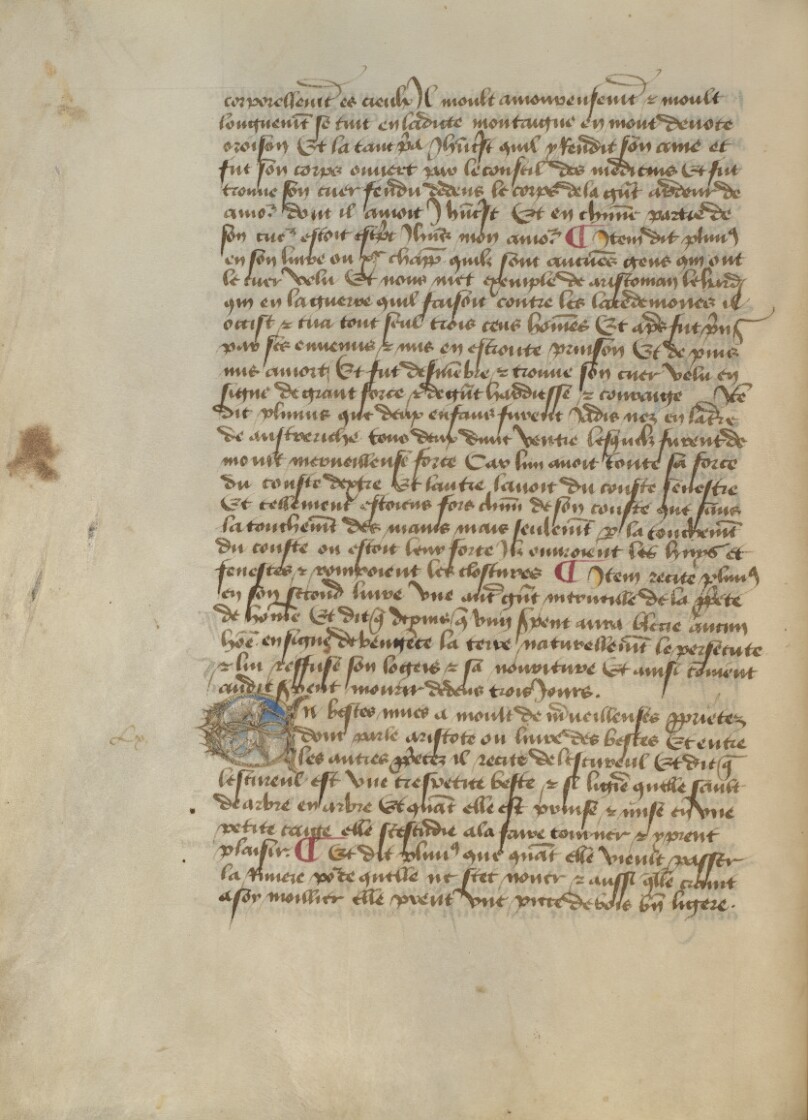 corporellemt es cieulx Il moult amoureusemt & moult
longuemt se tint en ladicte montaigne en moult devote
oroison Et la tant pa Jhucst quil y rendit son ame et
fut son corps ouvert par le conseil des medicins Et fut
trouve son cuer fendu dedens le corps de la gnt ardeur de
amor dont il amoit Jhucst Et en chune partie de
son cuer estoit escpt Jhus mon amor ¶ Item dit plinius
en son livre ou chapp quilz sont aucunes gens qui ont
le cuer velu Et nous met exemple de aristoman
qui en la guerre quil faisoit contre les lacedemones il
occist & tua tout seul trois cens homes Et aps fut pns
par ses ennemis & mis en estroite prinson Et de puis
mis a mort Et fut desmebre & trouve son cuer velu en
signe de grant force & de gnt hardiesse & couraige Ite
dit plinius que deux enfans furent Jadis nez en la tre
de austreriche tous deux dun ventre lesquelz furent de
moult merveilleuse force Car lun avoit toute sa force
du couste dextre Et lautre lavoit du couste senestre
Et tellement estoient fors chun de son couste que sans
la touchemt des mains mais seulemt p la touchemt
du couste ou estoit leur force Ilz ouvroient les huys et
fenestres & rompoient les clostures ¶ Item recite plinius
en son second livre une aut gnt merveille de la ppete
de home Et dit q depuis q ung spent aura blecie aucun
hoe en signe de vengece la terre naturellemt le persecute
& lui reffuse son logeis & sa nourriture Et ainsi coment
audit spent mourir dedens trois Jours.
En bestes mues a moult de mveilleuses pprietez
dont parle aristote ou livre des bestes Et entre
les autres ppetez il recite de lescureul Et dit q
lescureul est une trespetite beste & si ligie quelle sault
de arbre en arbre Et quat elle est prinse & mise en une
petite caige elle sestudie a la faire tourner & y prent
plaisir. ¶ Et dit plinius que quat elle vieult passer
la Riviere pource quelle ne scet nouer & aussi qlle craint
a soy moillier elle prent une piece de bois bn ligere.